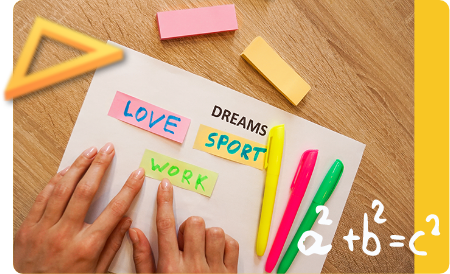 DREAMS
LOVE
SPORT
WORK
a² + b² = c²